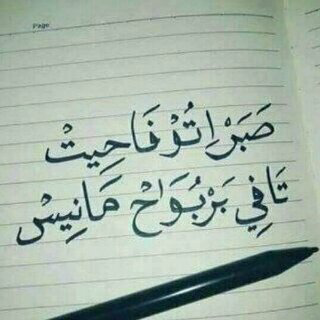 Page:
صَبَرْ اِتُوْ فَاحِيتْ
تَافِي بَرْبُوَاحْ مَانِيسْ